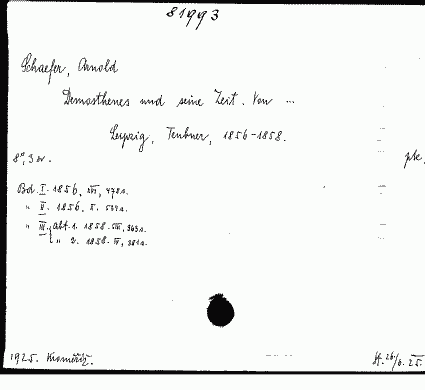 81993
Schaefer, Arnold
Demosthenes und seine Zeit. Von ...
Leipzig, Teubner, 1856-1858.
8°, 3 sv.
ptc.
Bd. I. 1856, XVI, 478 s.
" II. 1856, X. 534 s.
" III. Abt. 1. 1858. VIII, 363 s.
" 2. 1858. IV, 381 s.
1925. Kroměříž.
St. 26/6. 25.